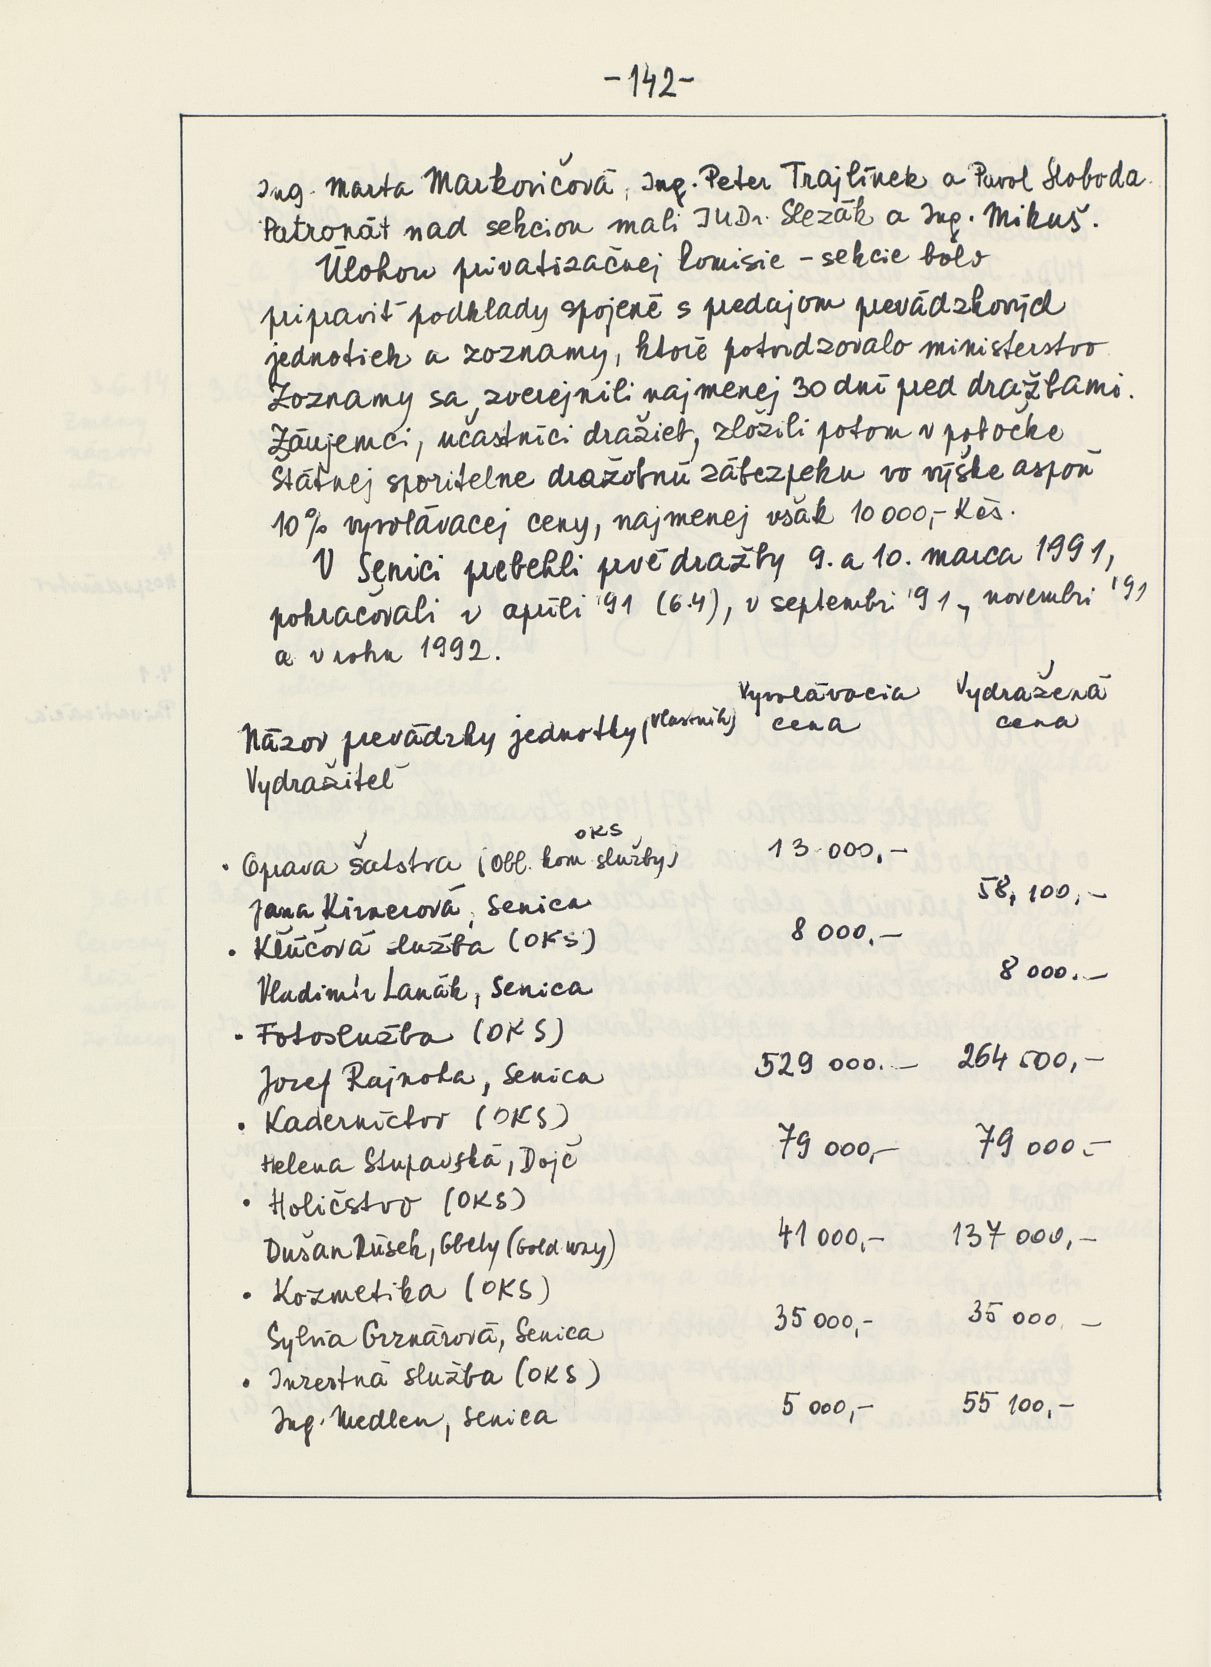 -142-
Ing. Marta Markovičová, Ing. Peter Trajlínek a Pavol Sloboda.
Patronát nad sekciou mali JUDr. Slezák a Ing. Mikuš.
Úlohou privatizačnej komisie - sekcie bolo
pripraviť podklady spojené s predajom prevádzkových
jednotiek a zoznamy, ktoré potvrdzovalo ministerstvo
Zoznamy sa zverejnili najmenej 30 dní pred dražbami.
Záujemci, účastníci dražieb, zložili potom v pobočke
Štátnej sporiteľne dražobnú zábezpeku vo výške aspoň
10% vyvolávacej ceny, najmenej však 10 000,- Kčs.
V Senici prebehli prvé dražby 9. a 10. marca 1991,
pokračovali v apríli '91 (6.4), v septembri '91, novembri '91
a v roku 1992.
Názov prevádzky jednotky (vlastník) Vyvolávacia cena Vydražená cena
Vydražiteľ
• Oprava šatstva (Obl. kom. služby) OKS 13 000,-
Jana Kirnerová, Senica 58,100,-
• Kľúčová služba (OKS) 8 000.-
Vladimír Lanák, Senica 8 000.-
• Fotoslužba (OKS)
Jozef Rajnoha, Senica 529 000.- 264 500,-
• Kaderníctvo (OKS)
Helena Stupavská, Dojč 79 000,- 79 000.-
• Holičstvo (OKS)
Dušan Rúsek, Gbely (Gold wzy) 41 000,- 137 000,-
• Kozmetika (OKS)
Sylvia Grznárová, Senica 35 000,- 35 000 -
• Inzertná služba (OKS)
Ing. Medlen, Senica 5 000,- 55 100,-